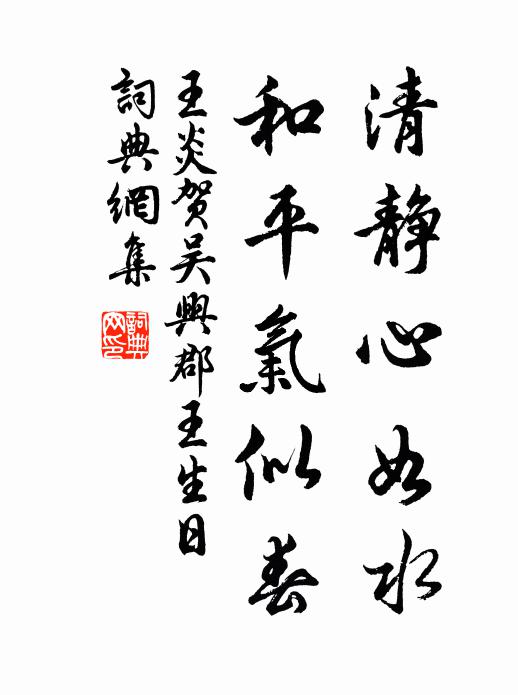 清靜心如水
和平氣似春
王炎賀吴興郡王生日
詞典網集
詞典網印